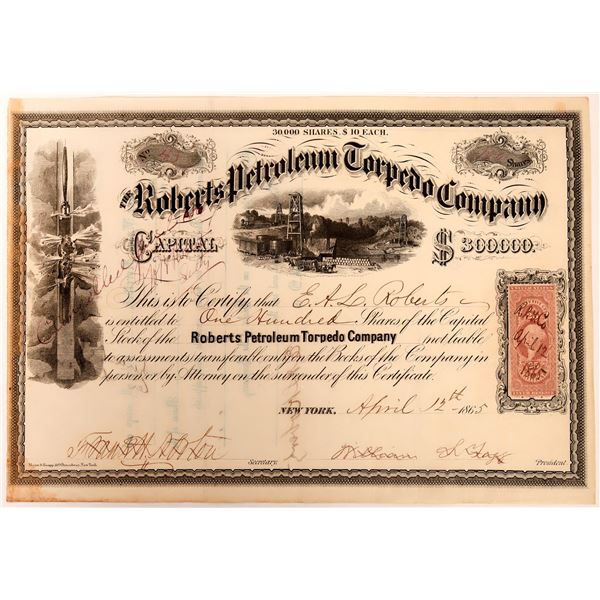 30.000 SHARES. $ 10 EACH.
No.
Shares
THE Roberts Petroleum Torpedo Company
CAPITAL $ 300000.
This is to Certify that E. A. L. Roberts
is entitled to One Hundred Shares of the Capital
Stock of the Roberts Petroleum Torpedo Company not liable
to assessments, transferable only on the Books of the Company in
person or by Attorney on the surrender of this Certificate.
NEW YORK, April 12th 1865
April 12
1865
Secretary.
President